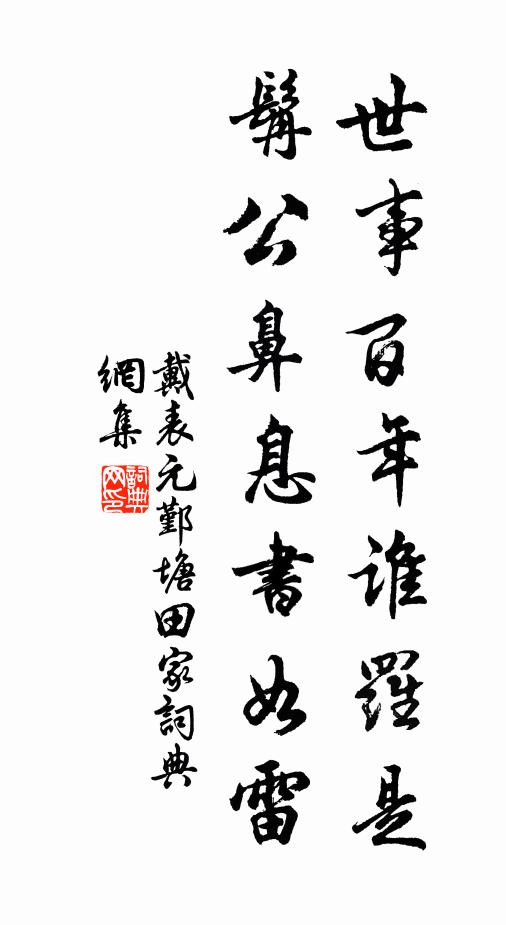 世事百年誰羅是
髯公鼻息書如雷
戴表元鄞塘田家詞典
網集
詞典
网印